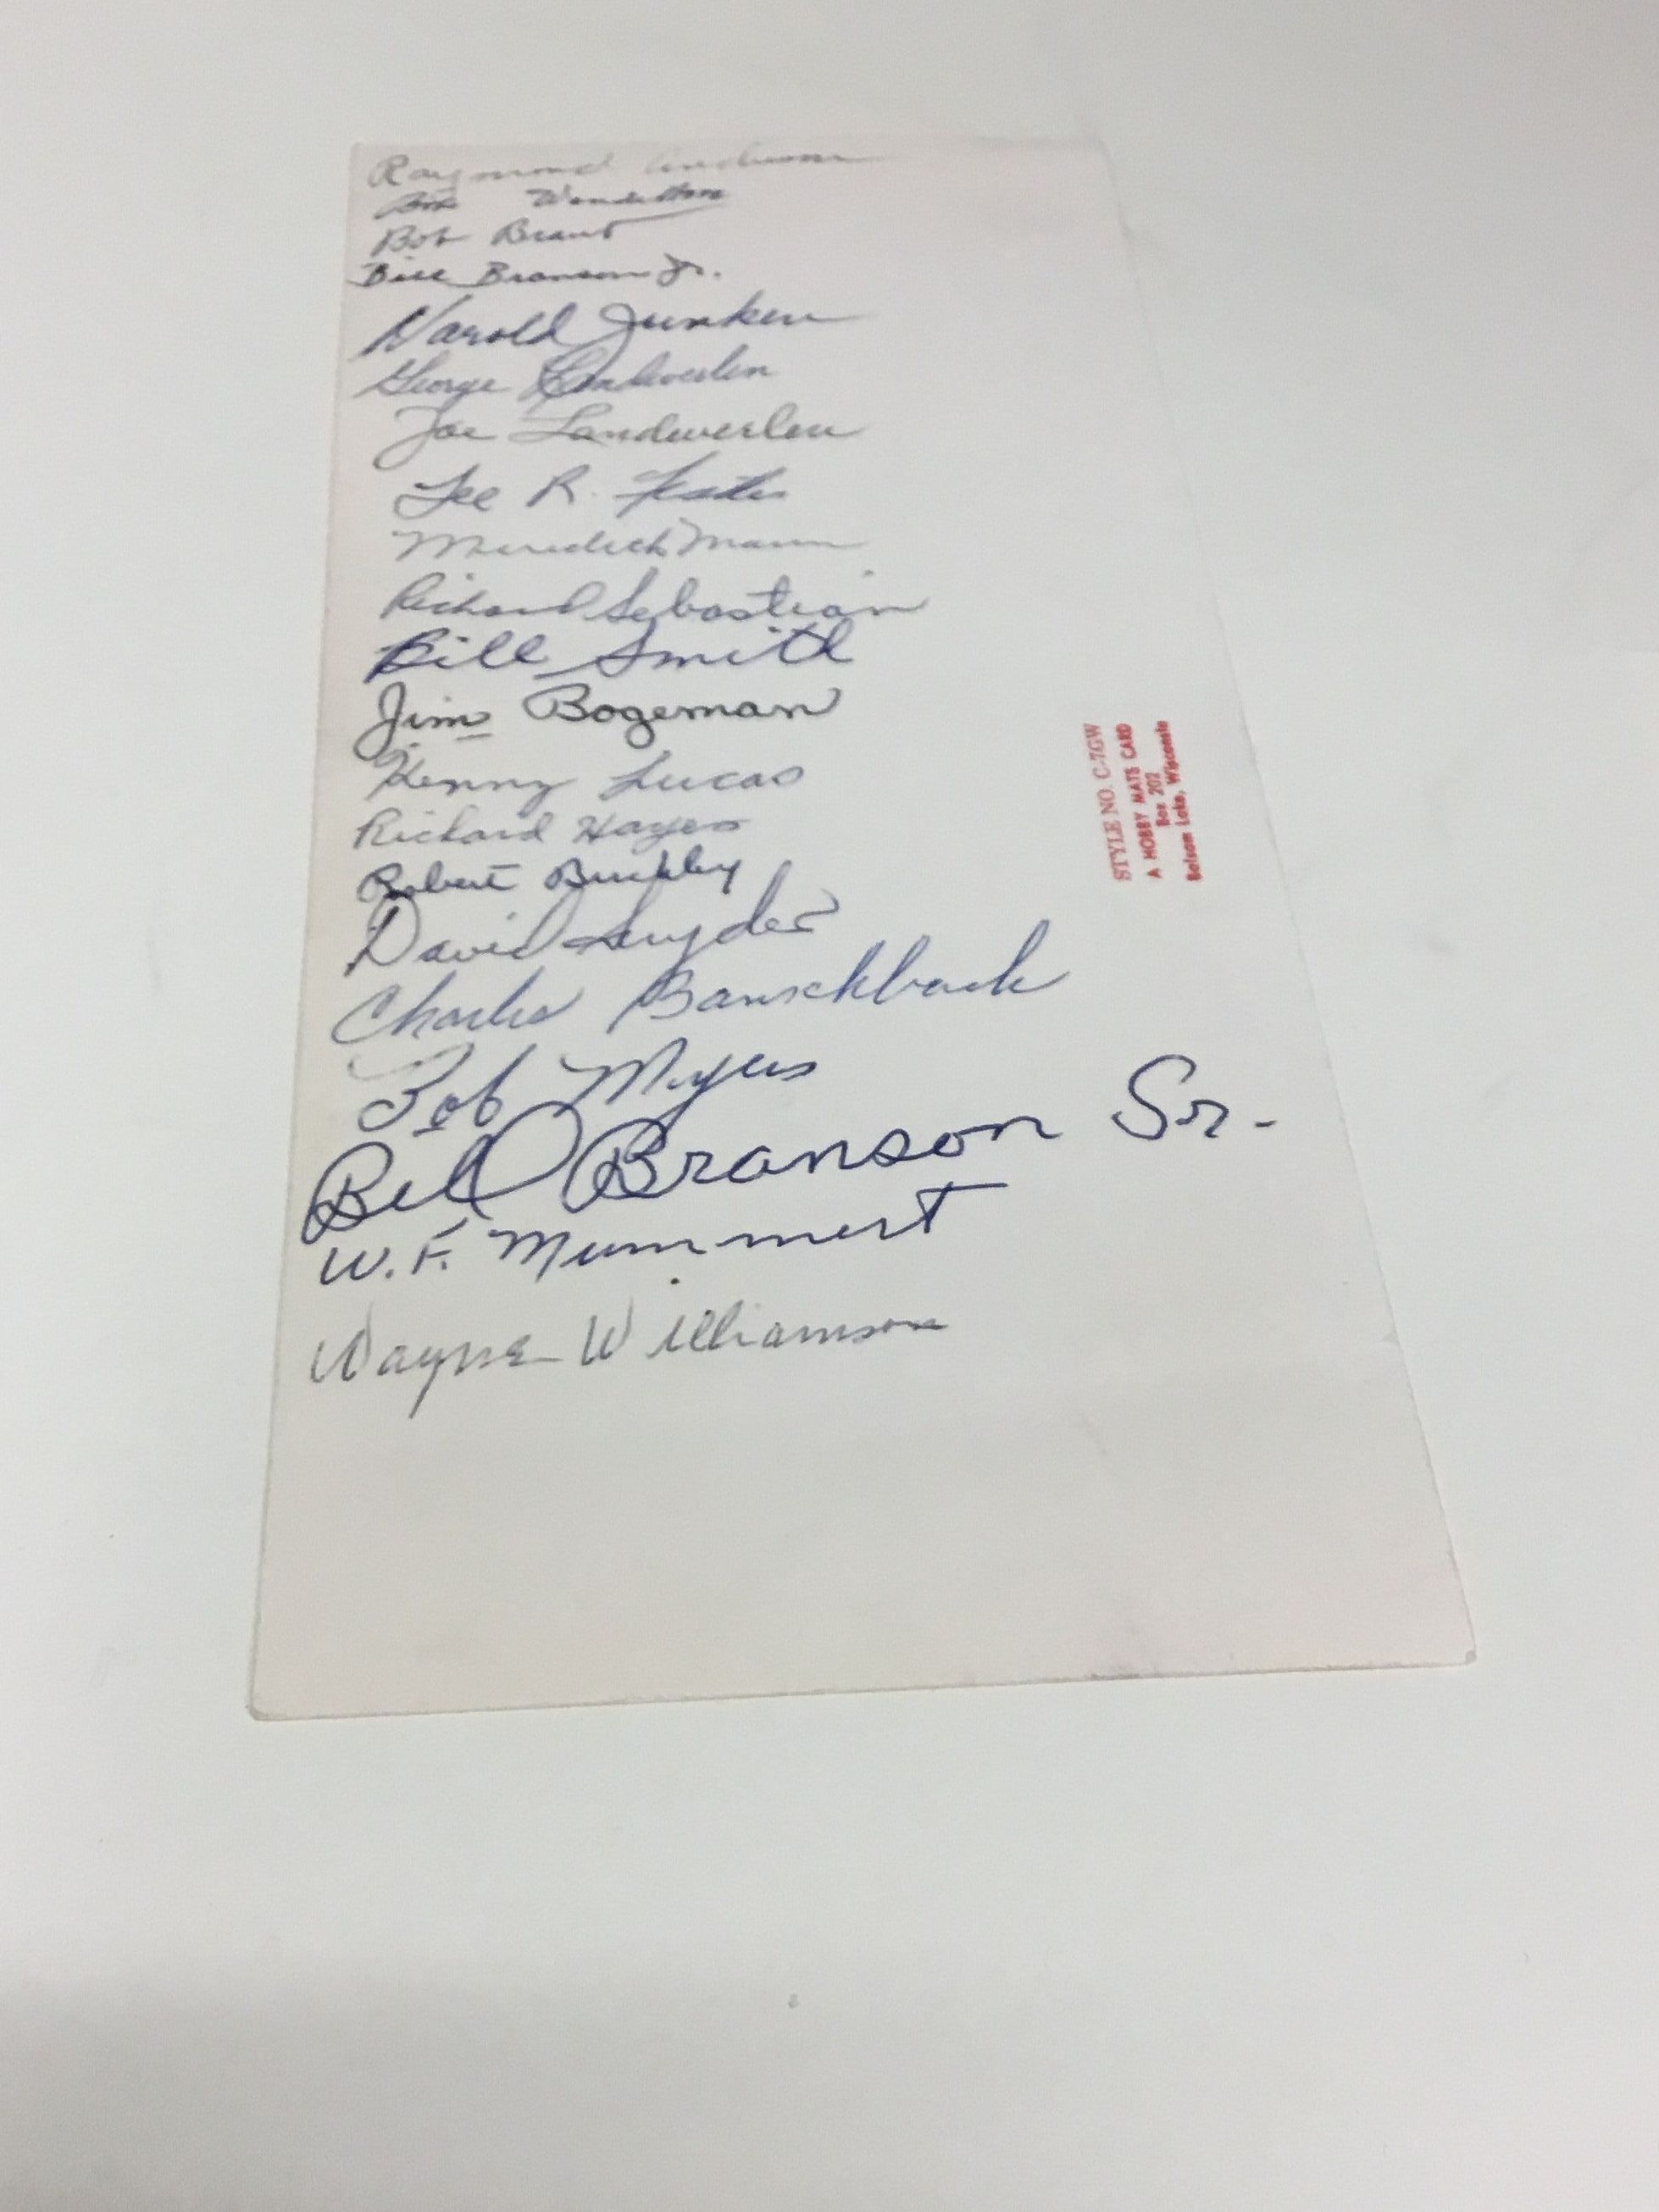 Raymond Anderson
Bob
Bob Brand
Bill Branson Jr.
Harold Junken
George Landwerlen
Joe Landwerlen
Lee R.
Meredith Mann
Richard Sebastian
Bill Smith
Jim Bogeman
Kenny Lucas
Richard Hayes
Robert
David Snyder
Charles
Bob Myers
Bill Branson Sr.
W. F. Mummert
Wayne Williamson
STYLE NO. C-7GW
A HOBBY MATS CARD
Box 202
Balsam Lake, Wisconsin